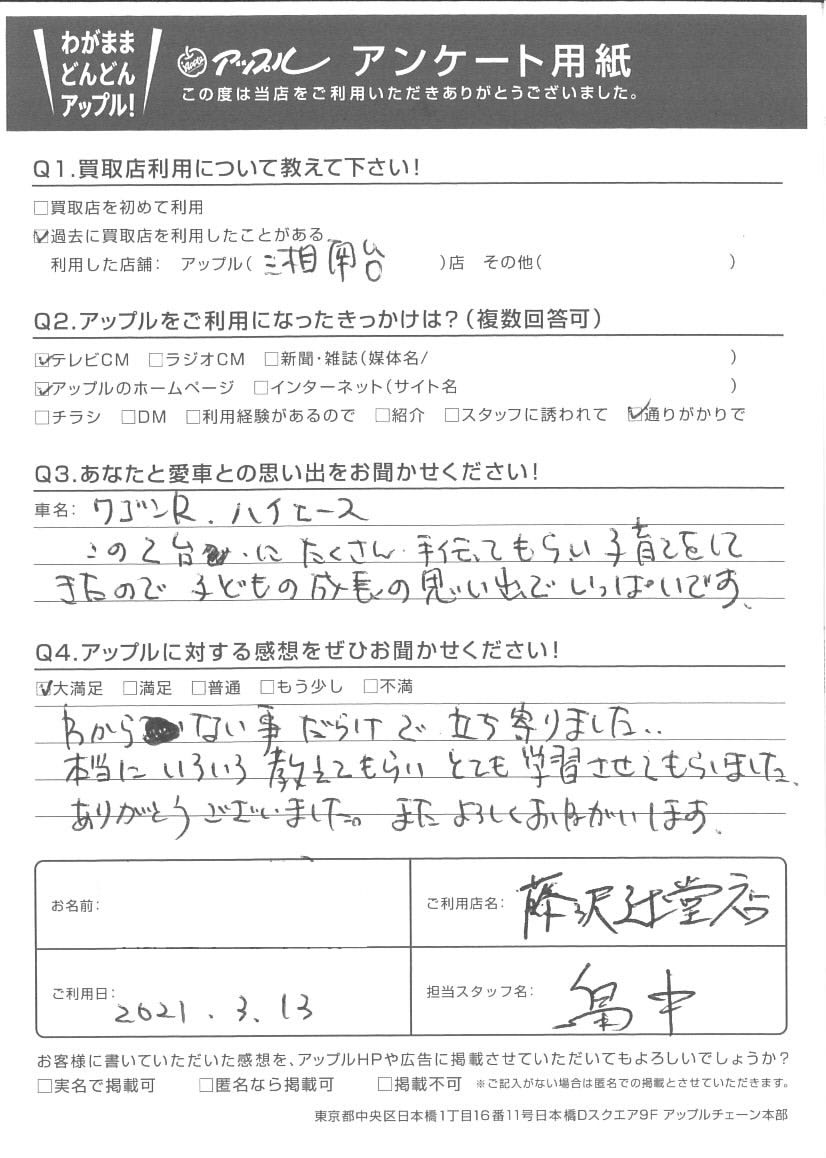 わがまま
どんどん
アップル!
Apple アップル アンケート用紙
この度は当店をご利用いただきありがとうございました。
Q1.買取店利用について教えて下さい!
□買取店を初めて利用
☑過去に買取店を利用したことがある
利用した店舗: アップル( 湘南台 )店 その他( )
Q2.アップルをご利用になったきっかけは?(複数回答可)
☑テレビCM □ラジオCM □新聞・雑誌(媒体名/ )
☑アップルのホームページ □インターネット(サイト名 )
□チラシ □DM □利用経験があるので □紹介 □スタッフに誘われて ☑通りがかりで
Q3.あなたと愛車との思い出をお聞かせください!
車名: ワゴンR. ハイエース
この2台 にたくさん手伝ってもらい子育てをして
きたので子どもの成長の思い出でいっぱいです、
Q4.アップルに対する感想をぜひお聞かせください!
☑大満足 □満足 □普通 □もう少し □不満
わから ない事だらけで立ち寄りました..
本当にいろいろ教えてもらいとても学習させてもらいました、
ありがとうございました。またよろしくおねがいします、
お名前:
ご利用店名: 藤沢辻堂店
ご利用日: 2021.3.13
担当スタッフ名: 畠中
お客様に書いていただいた感想を、アップルHPや広告に掲載させていただいてもよろしいでしょうか?
□実名で掲載可 □匿名なら掲載可 □掲載不可 ※ご記入がない場合は匿名での掲載とさせていただきます。
東京都中央区日本橋1丁目16番11号日本橋Dスクエア9F アップルチェーン本部